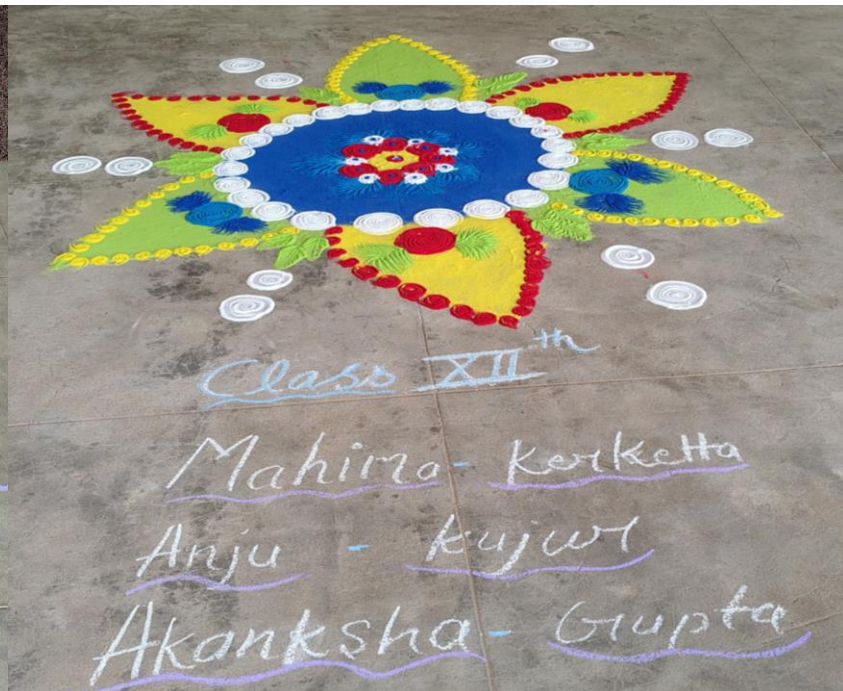 Class XIIth
Mahima - Kerketta
Anju - Kujur
Akanksha - Gupta